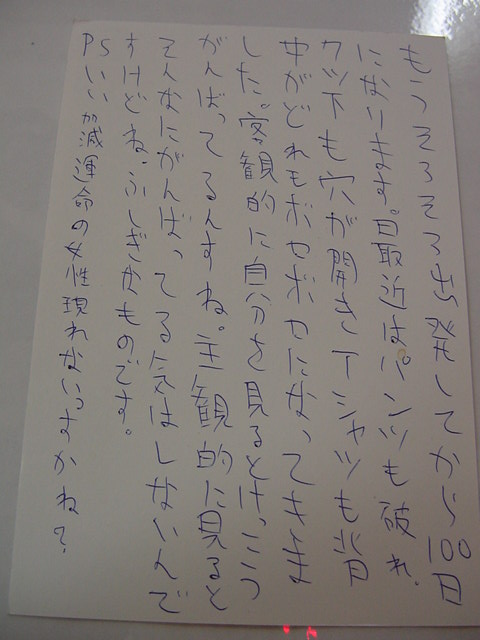 もうそろそろ出発してから100日
になります。最近はパンツも破れ、
クツ下も穴が開きTシャツも背
中がどれもボロボロになってきま
した。客観的に自分を見るとけっこう
がんばってるんすね。主観的に見ると
そんなにがんばってる気はしないんで
すけどね。ふしぎなものです。
PSいい加減運命の女性現れないっすかね？